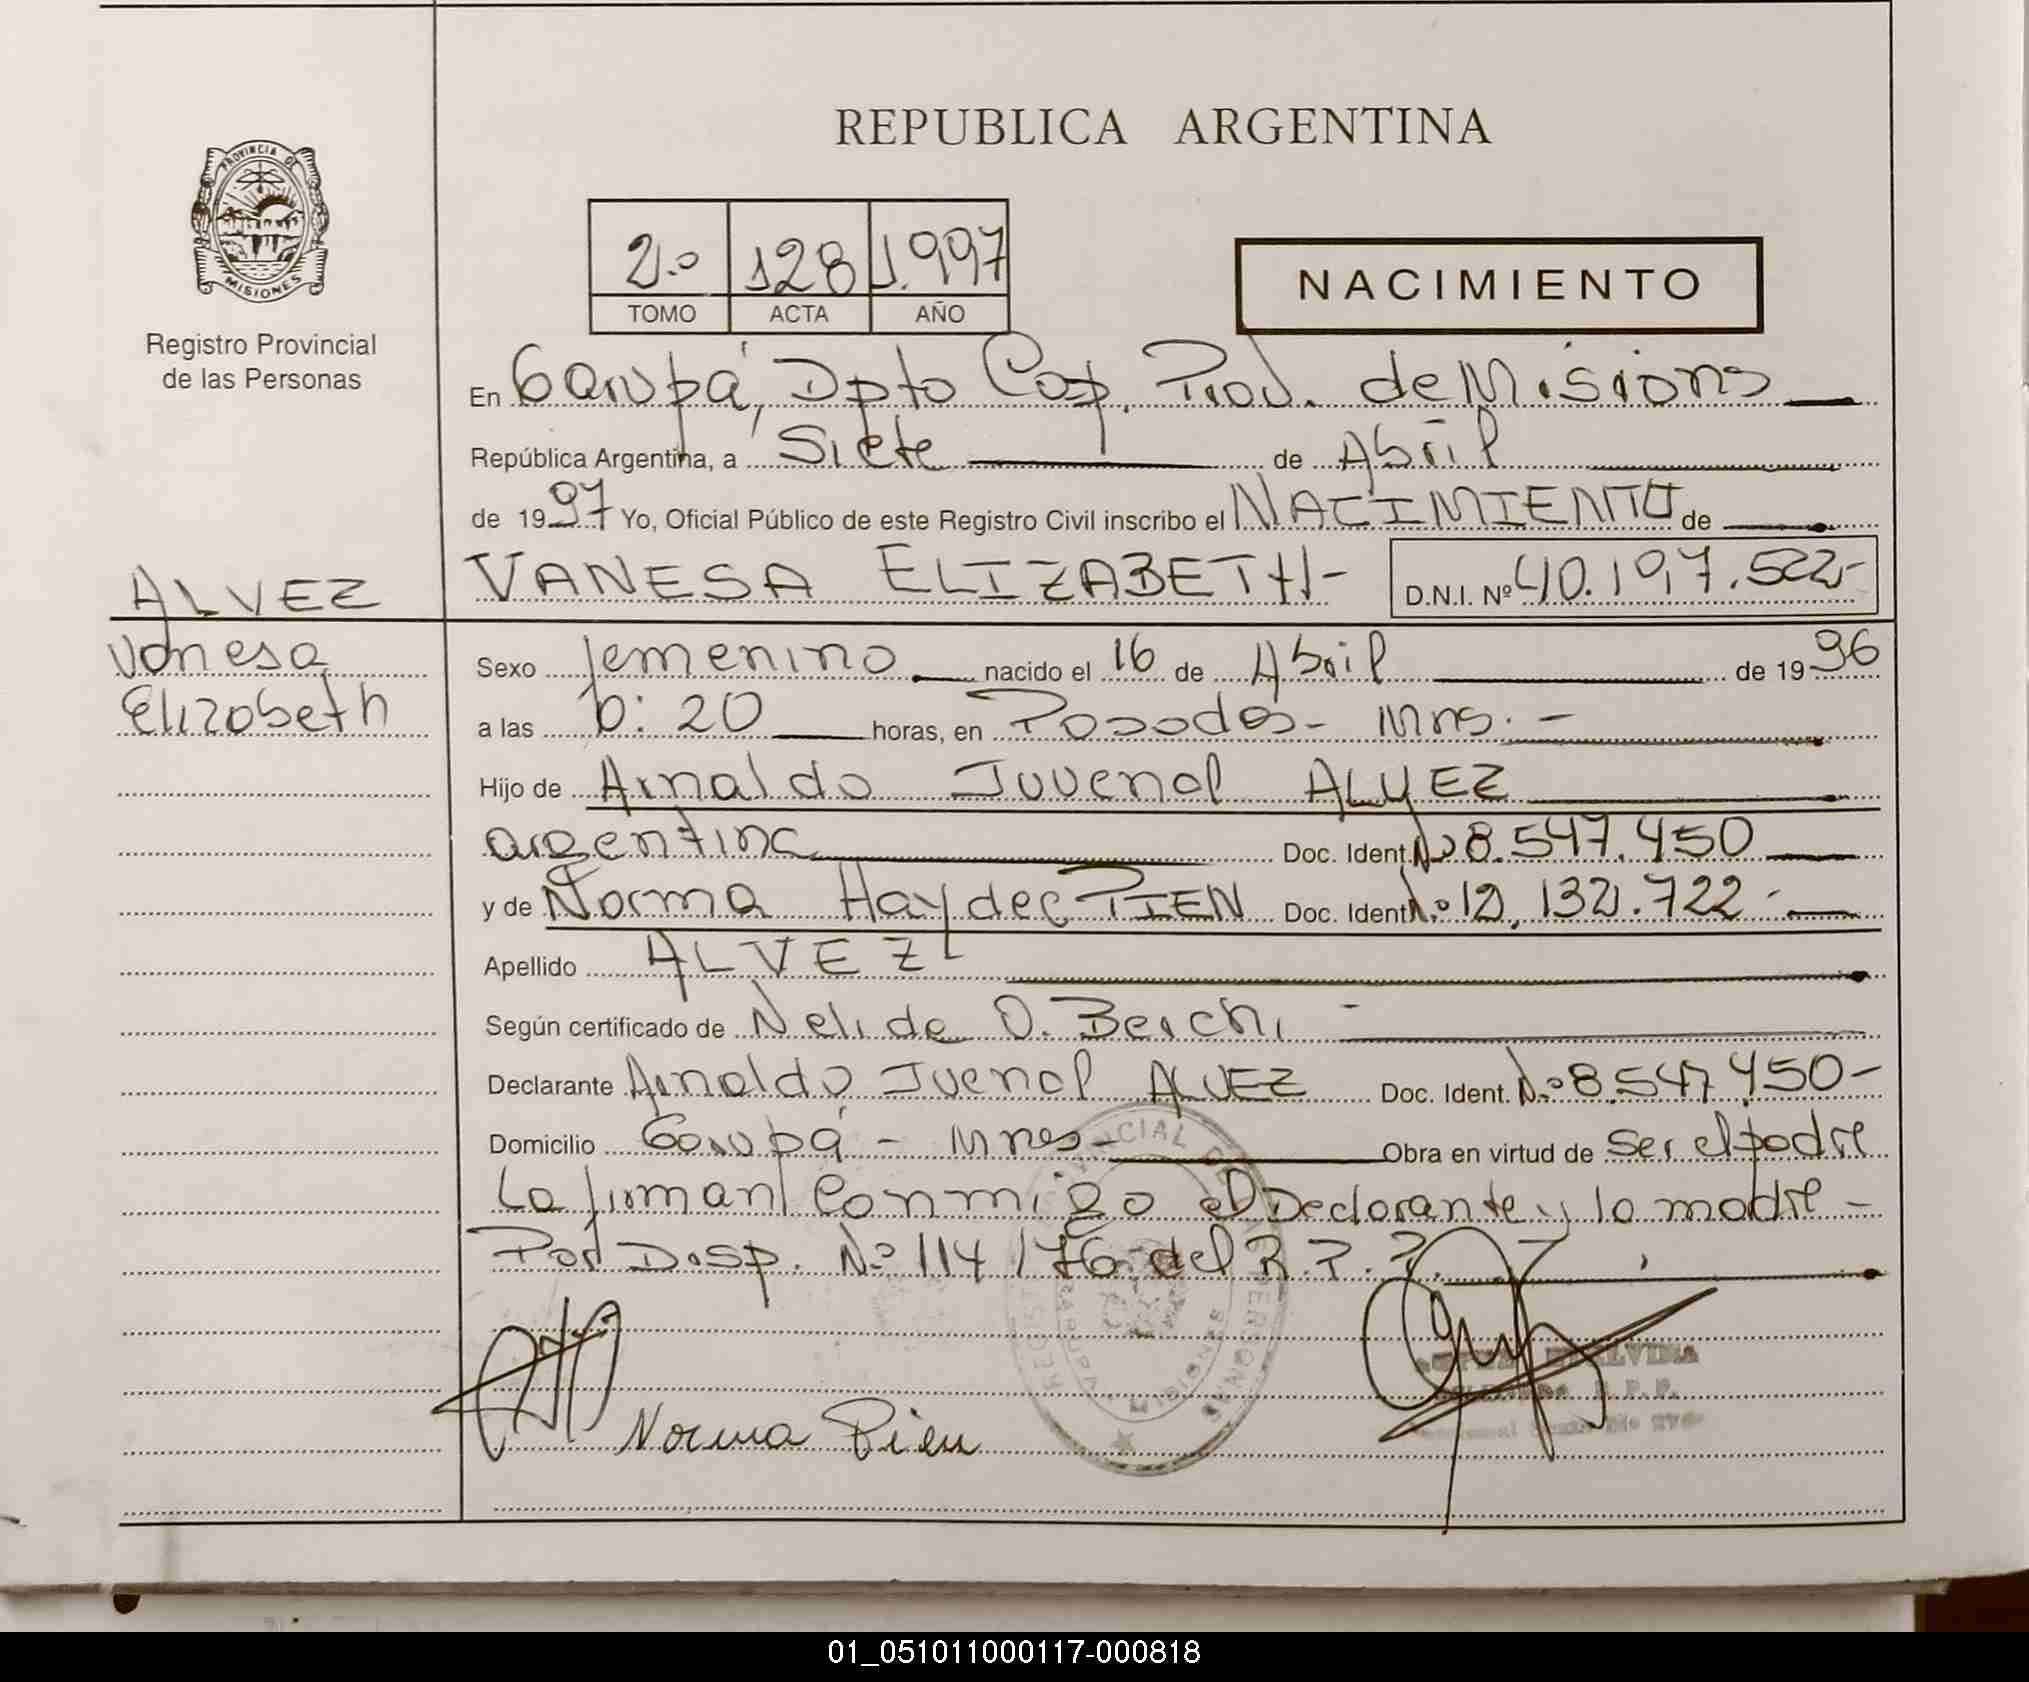 REPUBLICA ARGENTINA
PROVINCIA DE MISIONES
Registro Provincial
de las Personas
2º 128 1.997
TOMO ACTA AÑO
NACIMIENTO
En Garupá, Dpto Cap. Prov. de Misions
República Argentina, a Siete de Abril
de 1997 Yo, Oficial Público de este Registro Civil inscribo el NACIMIENTO de
VANESA ELIZABETH- D.N.I. Nº 40.197.522-
ALVEZ
Vanesa
Elizabeth
Sexo femenino nacido el 16 de Abril de 1996
a las 0:20 horas, en Posadas - Mns. -
Hijo de Arnaldo Juvenal ALVEZ
argentina Doc. Ident. Nº 8.547.450
y de Norma Haydee PIEN Doc. Ident. Nº 12.132.722.-
Apellido ALVEZ
Según certificado de Nelide O. Berchi -
Declarante Arnaldo Juenal ALVEZ Doc. Ident. Nº 8.547.450-
Domicilio Garupá - Mnes- Obra en virtud de Ser el padre
La firman Conmigo el Declarante y la madre -
Por Disp. Nº 114/76 del R.P.P.
Norma Pien
01_051011000117-000818